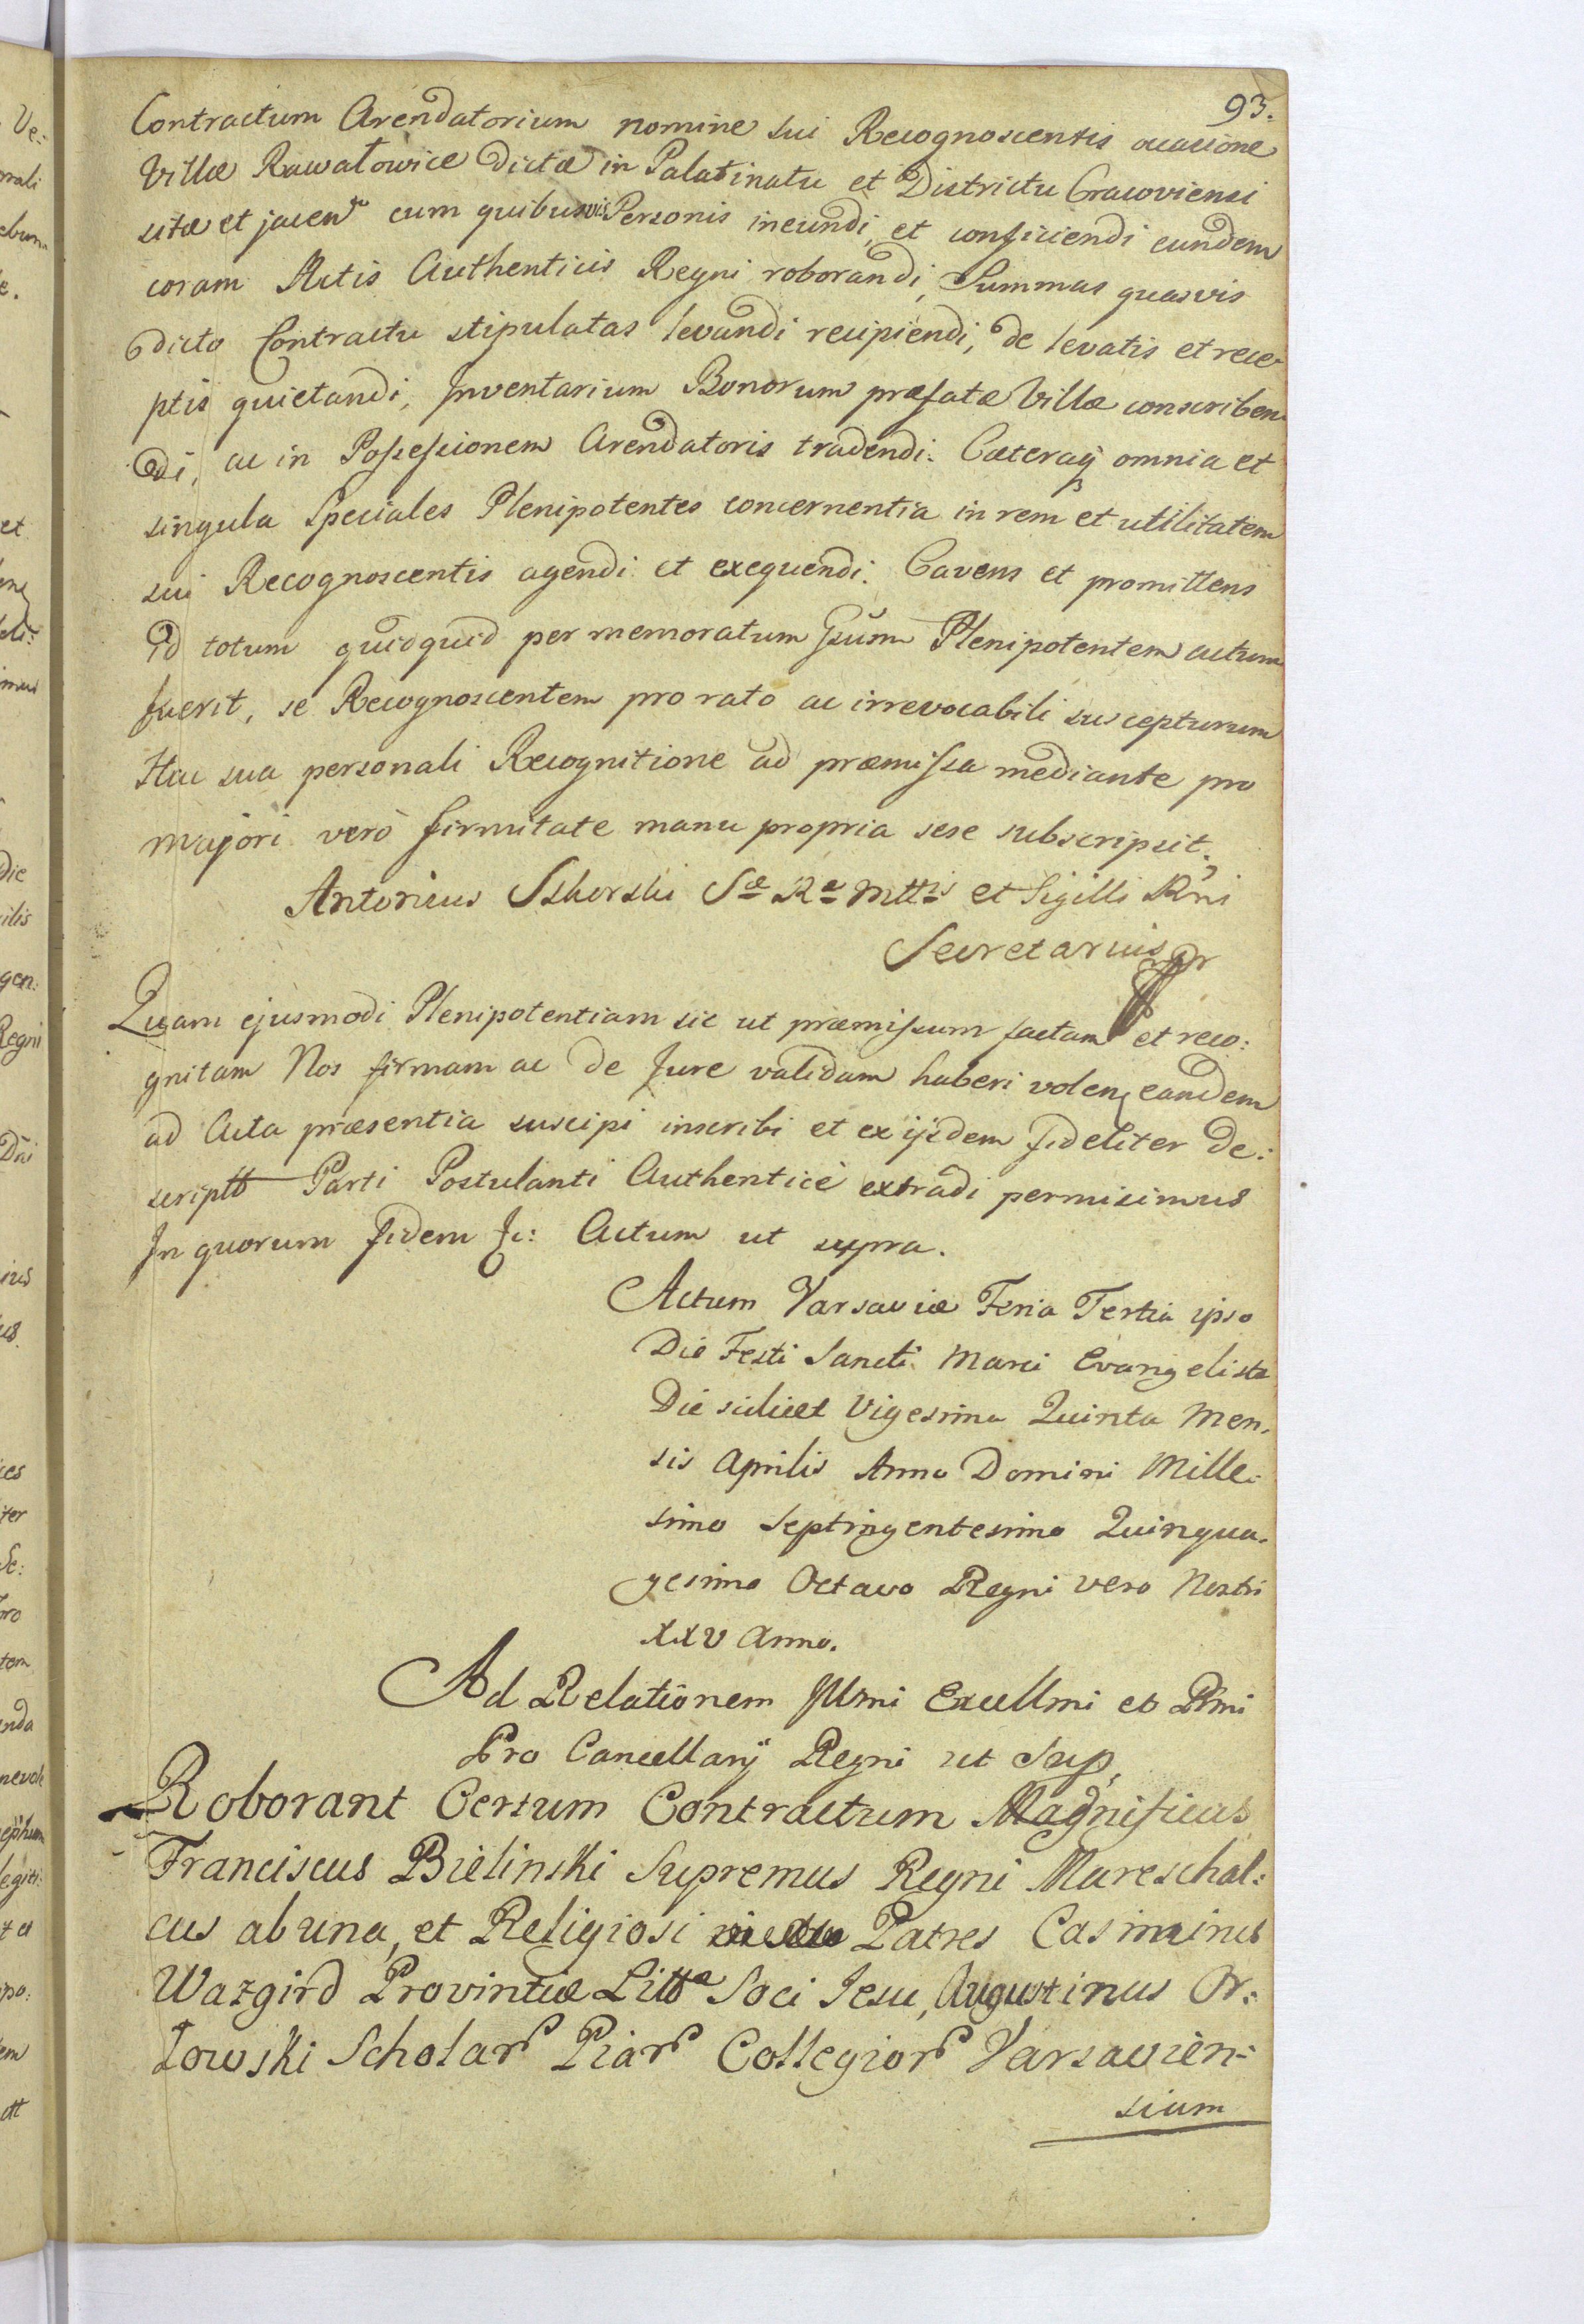 93.
Contractum Arendatorium nomine sui Recognoscentis occasione
Villæ Rawałowice dictæ in Palatinatu et Districtu Cracoviensi
sitæ et jacen cum quibusvis Personis ineundi, et conficiendi eundem
coram Actis Authenticis Regni roborandi, Summas quasvis
dicto Contractu stipulatas levandi recipiendi, de levatis et rece-
ptis quietandi, Inventarium Bonorum præfatæ Villæ conscriben-
di, ac in Possessionem Arendatoris tradendi. Cæteraq omnia et
singula Speciales Plenipotentes concernentia in rem et utilitatem
sui Recognoscentis agendi et exequendi. Cavens et promittens
Id totum quidquid per memoratum Gsum Plenipotentem actum
fuerit, se Recognoscentem pro rato ac irrevocabili suscepturum
Hac sua personali Recognitione ad præmissa mediante pro
majori verò firmitate manu propria sese subscripsit.
Antonius Sikorski Sæ Ræ Mttis et Sigilli Rni
Secretarius
Quam ejusmodi Plenipotentiam sic ut præmissum factam et reco:
gnitam Nos firmam ac de Jure validam haberi volen eandem
ad Acta præsentia suscipi inscribi et ex ijsdem fideliter de:
scriptt Parti Postulanti Authenticè extradi permisimus
In quorum fidem &c: Actum ut supra.
Actum Varsaviæ Feria Tertia ipso
Die Festi Sancti Marci Evangelistæ
Die scilicet Vigesima Quinta Men-
sis Aprilis Anno Domini Mille-
simo Septingentesimo Quinqua-
gesimo Octavo Regni vero Nostri
XXV Anno.
Ad Relationem Illmi Excellmi et Rmi
Pro Cancellarij Regni ut Sup,
Roborant Certum Contractum Magnificus
Franciscus Bielinski Supremus Regni Mareschal:
cus ab una, et Religiosi Patres Casimirus
Wazgird Provintiæ Littæ Soci Jesu, Augustinus Or:
łowski Scholar Piar Collegior Varsavien:
sium